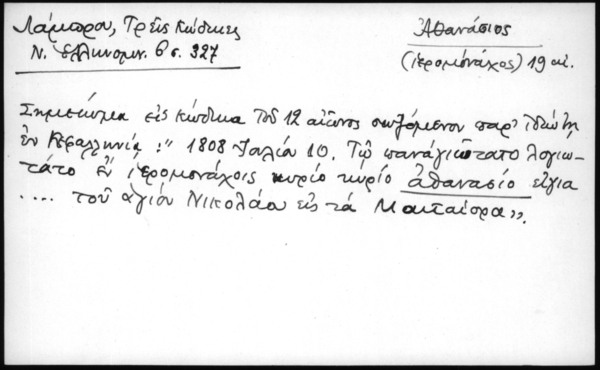 Λάμπρου, Τρεῖς Κώδικες
Ἀθανάσιος
Ν. Ἑλληνομν. 6 σ. 327
(ἱερομόναχος) 19 αἰ.
Σημείωμα εἰς κώδικα τοῦ 12 αἰῶνος σωζόμενον παρ' ἰδιώτῃ
ἐν Κεφαλληνίᾳ: " 1808 Ἰαλίὰ 10. Τῷ παναγιωτατο λογιω-
τάτο ἐν ἱερομονάχοις κυρίο κυρίο ἀθανασίο εἰγια
.... τοῦ ἁγίου Νικολάου εἰς τὰ Μαυταίορα».